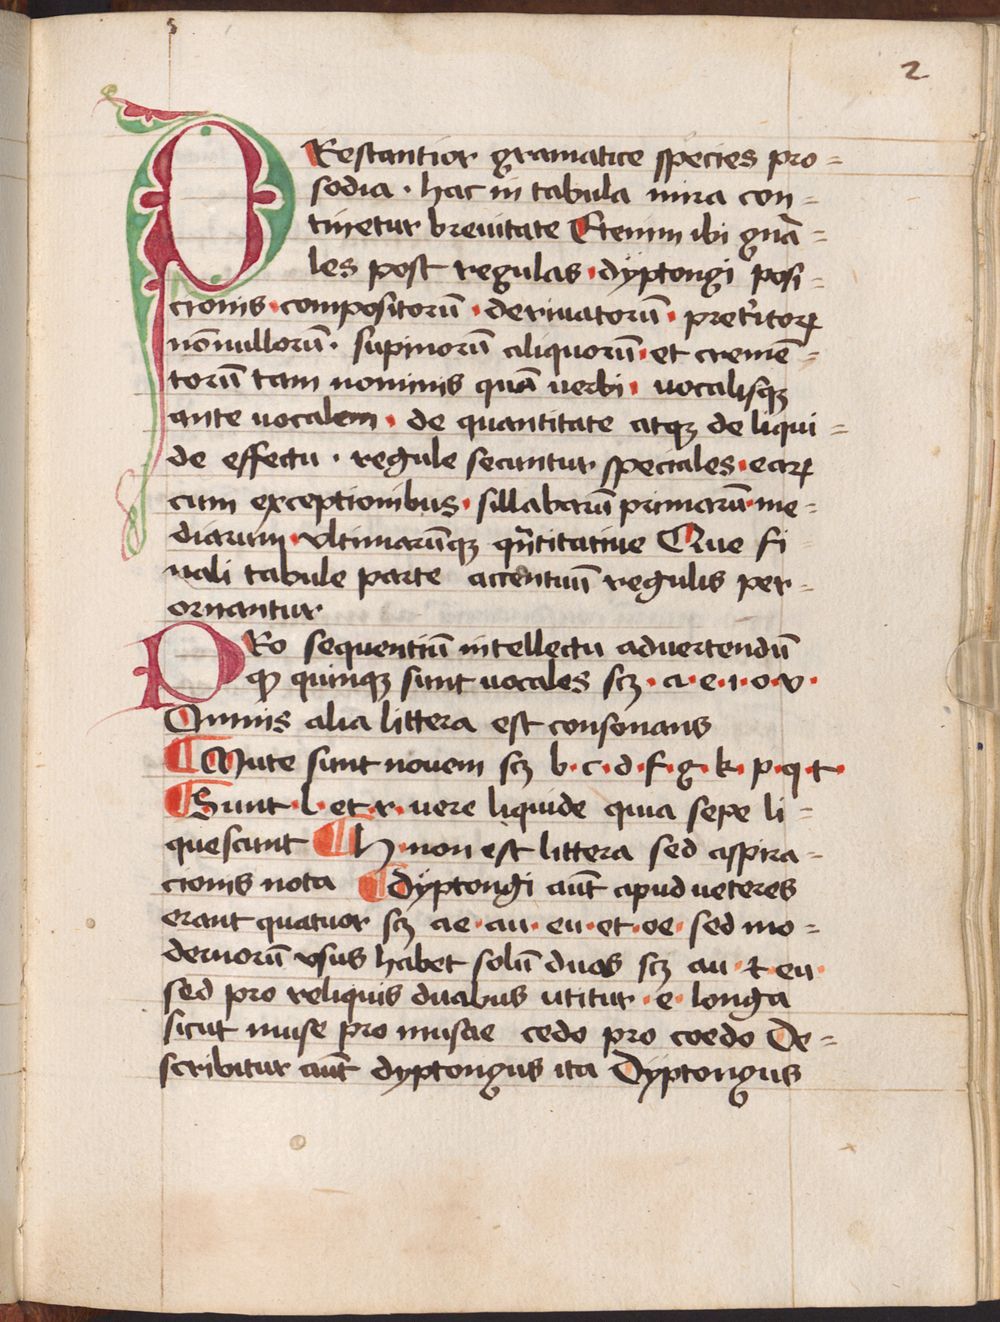 2
PRestantior gramatice species pro=
sodia · hac in tabula mira con=
tinetur breuitate Etenim ibi gnā=
les post regulas · dÿptongi posi=
cionis · compositorū · deriuatorū · pret'itoꝝ
nōnullorū · supinorū aliquorū · et cremē=
torū tam nominis quā uerbi · uocalisqꝫ
ante uocalem · de quantitate atqꝫ de liqui=
de effectu · regule secuntur speciales · eaꝝ
cum exceptionibus · sillabarū primarū · me=
diarum · vltimarūqꝫ qn̄titatiue Que fi
nali tabule parte accentuū regulis per=
ornantur
PRo sequentiū intellectu aduertendū
ꝙ quinqꝫ sunt uocales scꝫ · a · e · i · o · v ·
Omnis alia littera est consonans
¶ Mute sunt nouem scꝫ b · c · d · f · g · k · p · q · t ·
¶ Sunt · l · et · r · uere liquide quia sepe li=
quescunt ¶ h · non est littera sed aspira=
cionis nota ¶ dÿptongi aūt apud ueteres
erant quatuor scꝫ ae · au · eu · et · oe · sed mo=
dernorū vsus habet solū duas scꝫ au · ⁊ · eu ·
sed pro reliquis duabus utitur · e · longa
sicut muse pro musae cedo pro coedo De=
scribitur aūt dyptongus ita Dÿptongus